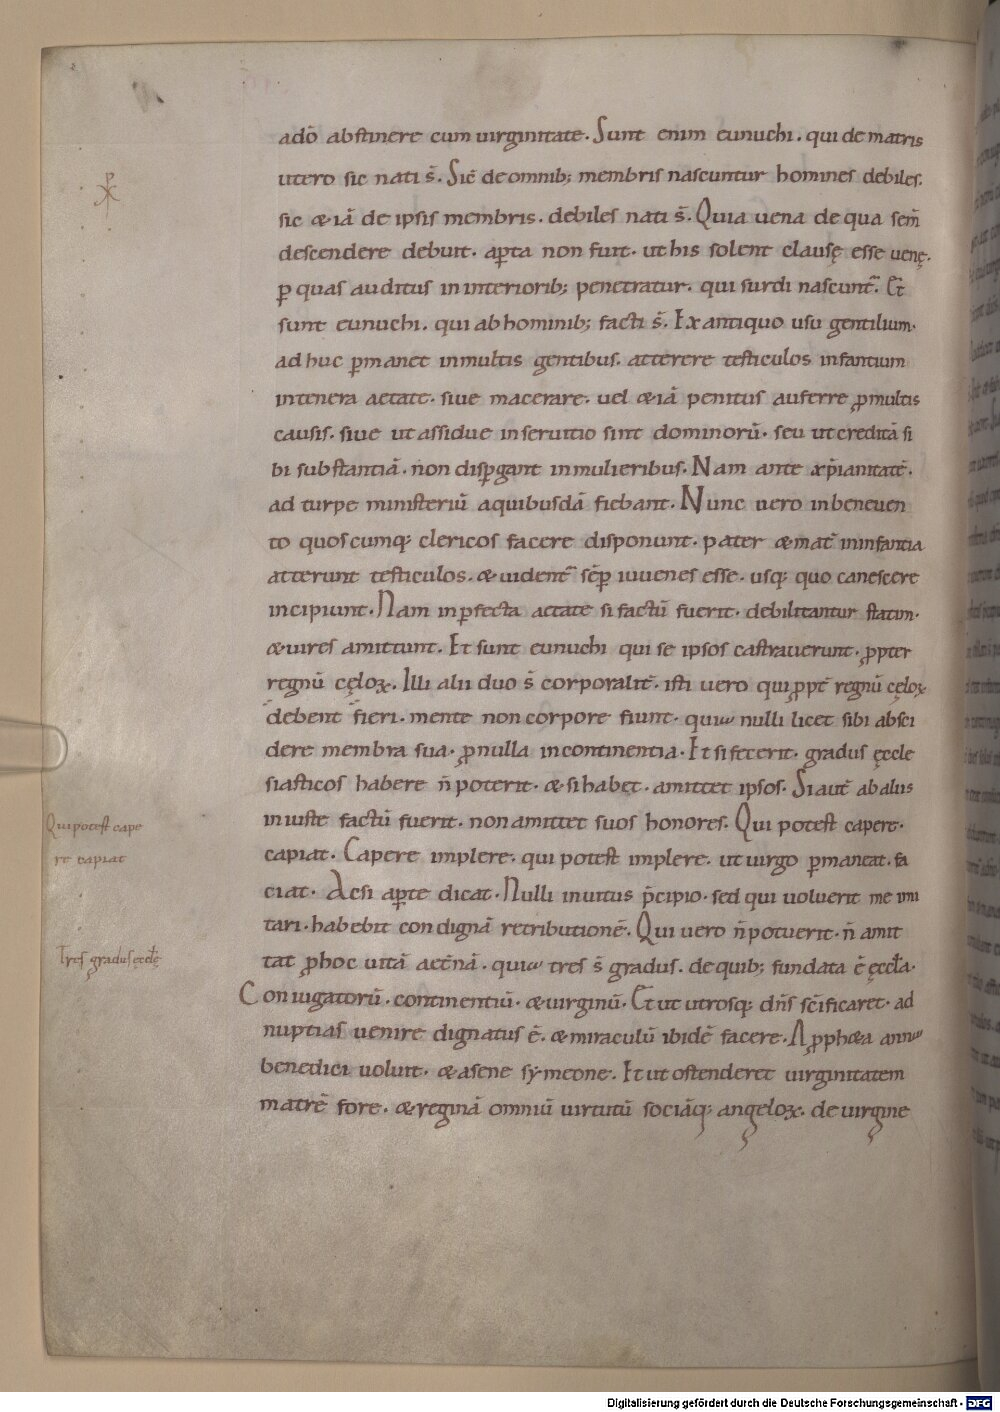 adō abstinere cum uirginitate. Sunt enim eunuchi. qui de matris
utero sic nati s̄. Sic̄ de omnib; membris nascuntur homines debiles.
sic & iā de ipsis membris. debiles nati s̄. Quia uena de qua sem̄
descendere debuit. ap̲ta non fuit. ut his solent clausę esse uenę.
p̲ quas auditus in interiorib; penetratur. qui surdi nascunt᷑. Et
sunt eunuchi. qui ab hominib; facti s̄. Ex antiquo usu gentilium.
ad huc p̲manet in multis gentibus. atterere testiculos infantium
in tenera aetate. siue macerare. uel & iā penitus auferre ꝓ multis
causis. siue ut assidue in seruitio sint dominorū. seu ut creditā si
bi substantiā. non disp̲gant in mulieribus. Nam ante xp̄ianitatē.
ad turpe ministeriū a quibusdā fiebant. Nunc uero in beneuen
to quoscumq; clericos facere disponunt. pater & mat̄ in infantia
atterunt testiculos. & uident᷑ sēp̲ iuuenes esse. usq; quo canescere
incipiunt. Nam in p̲fecta aetate si factū fuerit. debilitantur statim.
& uires amittunt. Et sunt eunuchi qui se ipsos castrauerunt. ꝓpter
regnū cęloꝝ. Illi alii duo s̄ corporalit̄. isti uero qui ꝓpt̄ regnū cęloꝝ
debent fieri. mente non corpore fiunt. quia nulli licet sibi absci
dere membra sua. ꝓ nulla incontinentia. Et si fecerit. gradus ęccle
siasticos habere n̄ poterit. & si habet. amittet ipsos. Si aut̄ ab aliis
iniuste factū fuerit. non amittet suos honores. Qui potest capere.
capiat. Capere implere. qui potest implere. ut uirgo p̲maneat. fa
ciat. Ac si ap̲te dicat. Nulli inuitus p̄cipio. sed qui uoluerit me imi
tari. habebit condignā retributionē. Qui uero n̄ potuerit. n̄ amit
tat ꝓ hoc uitā aet̄nā. quia tres s̄ gradus. de quib; fundata ē ęccl̄a.
Coniugatorū. continentiū. & uirginū. Et ut utrosq; dn̄s sc̄ificaret. ad
nuptias uenire dignatus ē. & miraculū ibidē facere. A ꝓph&a anna
benedici uoluit. & a sene symeone. Et ut ostenderet uirginitatem
matrē fore. & reginā omniū uirtutū sociāq; angeloꝝ. de uirgine
Qui potest cape
re capiat
Tres gradus ęccl̄ę